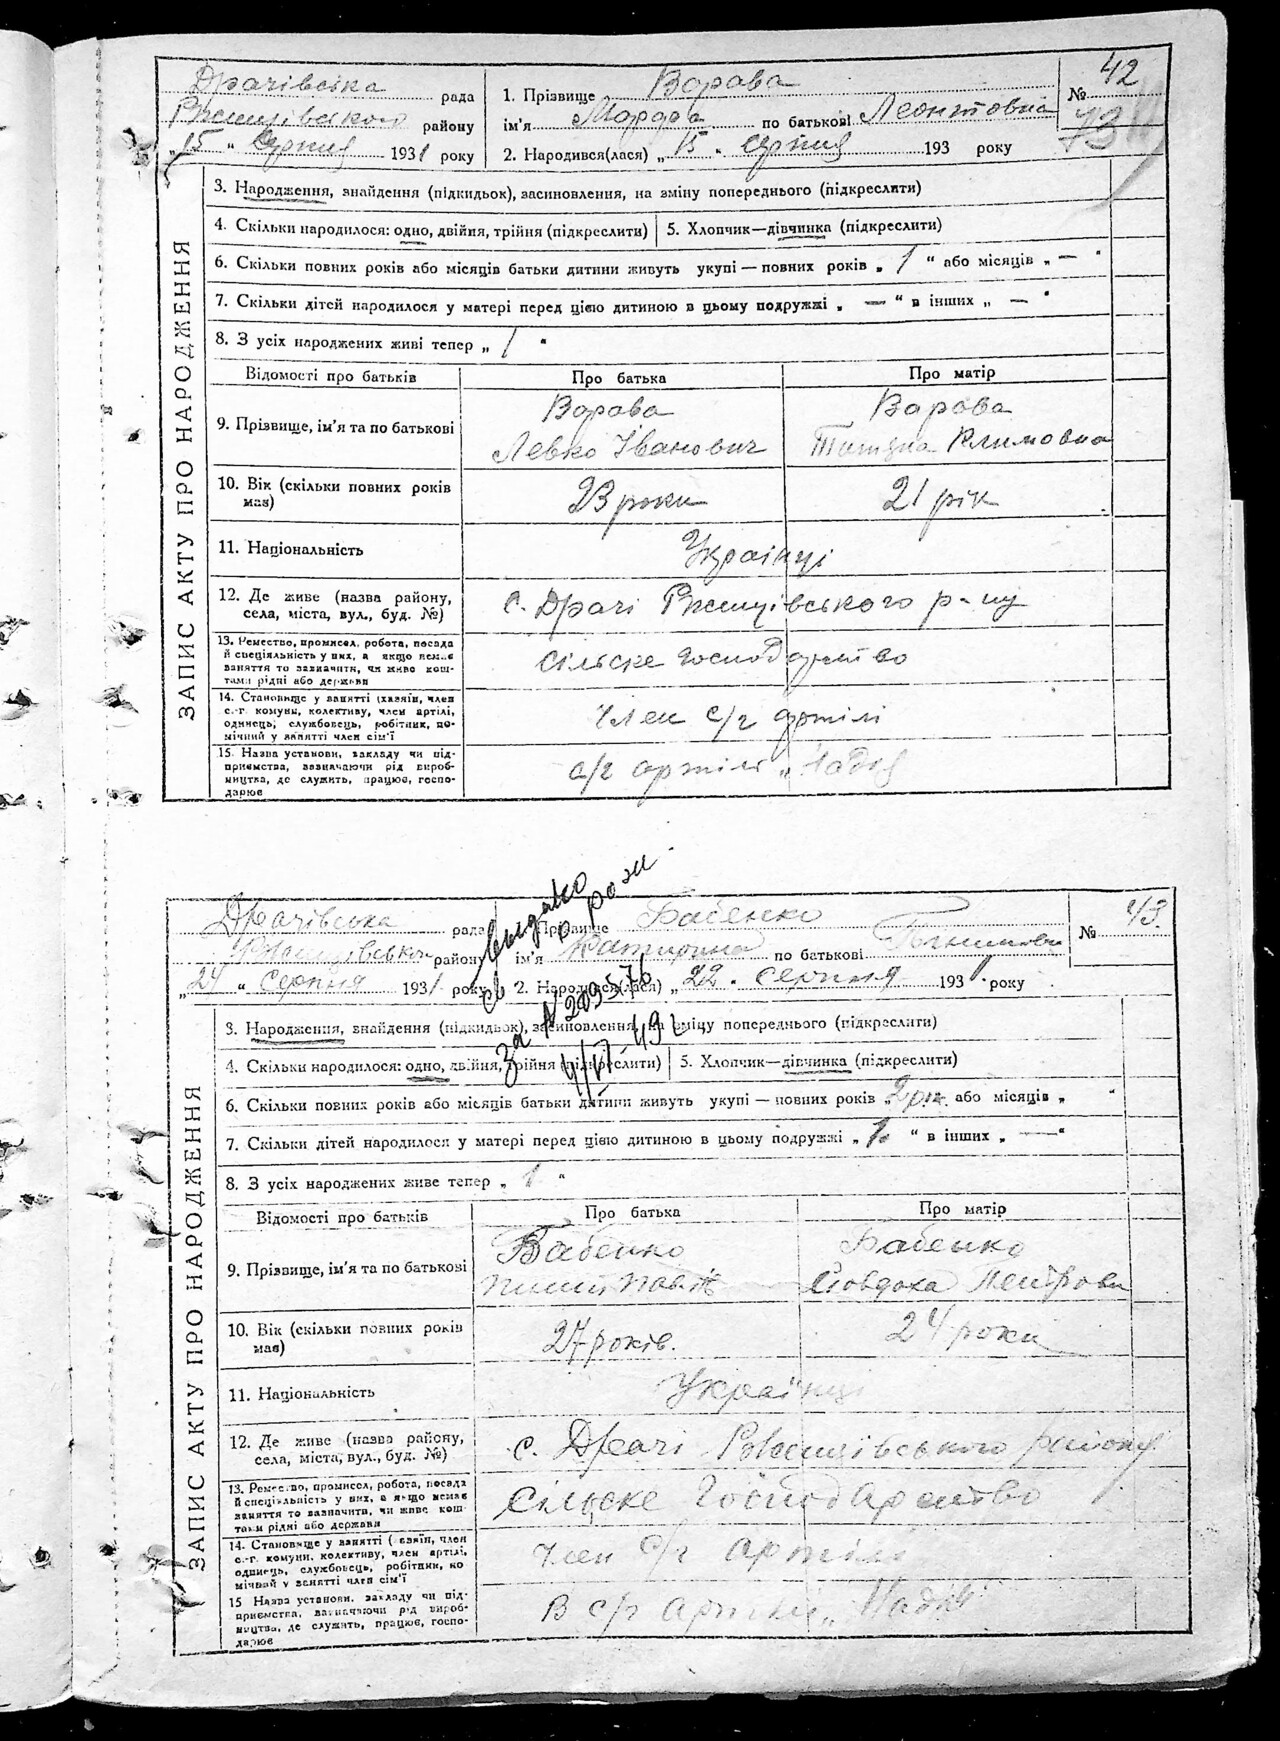 Драчівська рада
Ржищівського району
„15 “ Серпня 1931 року
1. Прізвище Варава
ім'я по батькові Леонтовна
2. Народився(лася) „ 15 “ серпня 193 року
№ 42
73
ЗАПИС АКТУ ПРО НАРОДЖЕННЯ
3. Народження, знайдення (підкидьок), засиновлення, на зміну попереднього (підкреслити)
4. Скільки народилося: одно, двійня, трійня (підкреслити) 5. Хлопчик—дівчинка (підкреслити)
6. Скільки повних років або місяців батьки дитини живуть укупі — повних років „ 1 “ або місяців „ — “
7. Скільки дітей народилося у матері перед цією дитиною в цьому подружжі „ — “ в інших „ — “
8. З усіх народжених живі тепер „ 1 “
Відомості про батьків Про батька Про матір
9. Прізвище, ім'я та по батькові
Варава Варава
Левко Іванович Татяна Климовна
10. Вік (скільки повних років має) 23 роки 21 рік
11. Національність Українці
12. Де живе (назва району, села, міста, вул., буд. №) с. Драчі Ржищівського р-ну
13. Ремество, промисел, робота, посада
й спеціяльність у них, а якщо немає
заняття то зазначити, чи живе кош-
тами рідні або держави
сільске господарство
14. Становище у занятті (хазяїн, член
с.-г. комуни, колективу, член артілі,
одинець, службовець, робітник, по-
мічний у занятті член сім'ї
член с/г артілі
15. Назва установи, закладу чи під-
приємства, зазначаючи рід вироб-
ництва, де служить, працює, госпо-
дарює
с/г артілі „Надія
Драчівська рада
району
„24 “ Серпня 1931 року
Прізвище Бабенко
ім'я по батькові
2. Народився(лася) „22 “ серпня 1931 року
№ 43
видано
св
за № 209576
ЗАПИС АКТУ ПРО НАРОДЖЕННЯ
3. Народження, знайдення (підкидьок), засиновлення, на зміну попереднього (підкреслити)
4. Скільки народилося: одно, двійня, трійня (підкреслити) 5. Хлопчик—дівчинка (підкреслити)
6. Скільки повних років або місяців батьки дитини живуть укупі — повних років „ 2 р. “ або місяців „ “
7. Скільки дітей народилося у матері перед цією дитиною в цьому подружжі „ 1. “ в інших „ — “
8. З усіх народжених живе тепер „ 1 “
Відомості про батьків Про батька Про матір
9. Прізвище, ім'я та по батькові
Бабенко Бабенко
Явдоха Петровн
10. Вік (скільки повних років має) 27 років. 24 роки
11. Національність Українці
12. Де живе (назва району, села, міста, вул., буд. №) с. Драчі Ржищівського району
13. Ремество, промисел, робота, посада
й спеціяльність у них, а якщо немає
заняття то зазначити, чи живе кош-
тами рідні або держави
сільске господарство
14. Становище у занятті (хазяїн, член
с.-г. комуни, колективу, член артілі,
одинець, службовець, робітник, по
мічний у занятті член сім'ї
член с/г артілі
15 Назва установи, закладу чи під-
приємства, зазначаючи рід вироб-
ництва, де служить, працює, госпо-
дарює
В с/г артілі „Надія“